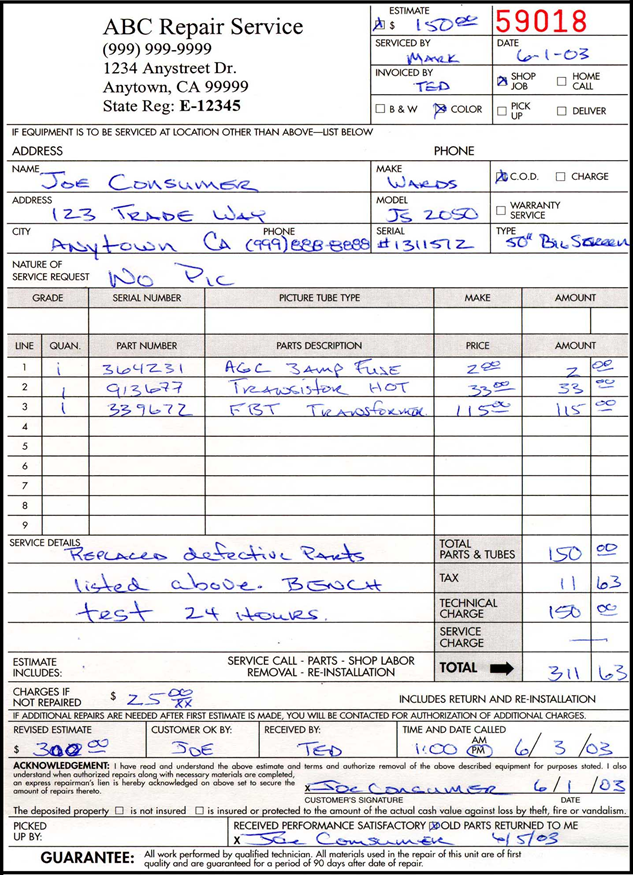 ABC Repair Service
(999) 999-9999
1234 Anystreet Dr.
Anytown, CA 99999
State Reg: E-12345
ESTIMATE
$ 150 00
59018
SERVICED BY
MARK
DATE
6-1-03
INVOICED BY
TED
SHOP JOB
HOME CALL
B & W
COLOR
PICK UP
DELIVER
IF EQUIPMENT IS TO BE SERVICED AT LOCATION OTHER THAN ABOVE—LIST BELOW
ADDRESS PHONE
NAME JOE CONSUMER
MAKE WARDS
C.O.D. CHARGE
ADDRESS 123 TRADE WAY
MODEL JS 2050
WARRANTY SERVICE
CITY PHONE
ANYTOWN CA (999)888-8888
SERIAL #1311512
TYPE 50" BIG SCREEN
NATURE OF SERVICE REQUEST NO PIC
GRADE SERIAL NUMBER PICTURE TUBE TYPE MAKE AMOUNT
LINE QUAN. PART NUMBER PARTS DESCRIPTION PRICE AMOUNT
1 1 364231 AGC 3AMP FUSE 2 00 2 00
2 1 913677 TRANSISTOR HOT 33 00 33 00
3 1 339672 FBT TRANSFORMER 115 00 115 00
4
5
6
7
8
9
SERVICE DETAILS
REPLACED defective PARTS
listed above. BENCH
test 24 HOURS.
TOTAL PARTS & TUBES 150 00
TAX 11 63
TECHNICAL CHARGE 150 00
SERVICE CHARGE —
ESTIMATE INCLUDES:
SERVICE CALL - PARTS - SHOP LABOR
REMOVAL - RE-INSTALLATION
TOTAL 311 63
CHARGES IF NOT REPAIRED $ 25 00 XX
INCLUDES RETURN AND RE-INSTALLATION
IF ADDITIONAL REPAIRS ARE NEEDED AFTER FIRST ESTIMATE IS MADE, YOU WILL BE CONTACTED FOR AUTHORIZATION OF ADDITIONAL CHARGES.
REVISED ESTIMATE CUSTOMER OK BY: RECEIVED BY: TIME AND DATE CALLED
$ 300 00 JOE TED 11:00 AM PM 6/3/03
ACKNOWLEDGEMENT: I have read and understand the above estimate and terms and authorize removal of the above described equipment for purposes stated. I also
understand when authorized repairs along with necessary materials are completed,
an express repairman's lien is hereby acknowledged on above set to secure the
amount of repairs thereto.
X Joe Consumer 6/1/03
CUSTOMER'S SIGNATURE DATE
The deposited property is not insured is insured or protected to the amount of the actual cash value against loss by theft, fire or vandalism.
PICKED UP BY:
RECEIVED PERFORMANCE SATISFACTORY OLD PARTS RETURNED TO ME
X Joe Consumer 6/5/03
GUARANTEE: All work performed by qualified technician. All materials used in the repair of this unit are of first
quality and are guaranteed for a period of 90 days after date of repair.